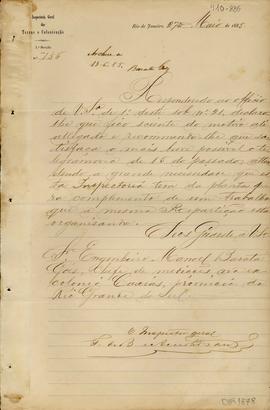 410-826
Inspectoria Geral
das
Terras e Colonisação
Rio de Janeiro, 27 de Maio de 1885.
Archive-se
Barata Góes
Respondendo ao officio
de V. Sª de 1º deste sob nº 91, declaro
lhe que fico sciente do motivo
allegado e recommendo-lhe que sa-
tisfaça o mais bem possivel o te-
legramma de 16 do passado,
a grande necessidade que es-
ta Inspectoria tem da planta
complemento de um trabalho
que a mesma Repartição está
organisando.
Deos Guarde a V. Sª
Sr. Engenheiro Manoel Barata
Góes, Chefe de medições, na ex
colonia Caxias, provincia do
Rio Grande do Sul.
O Inspector geral